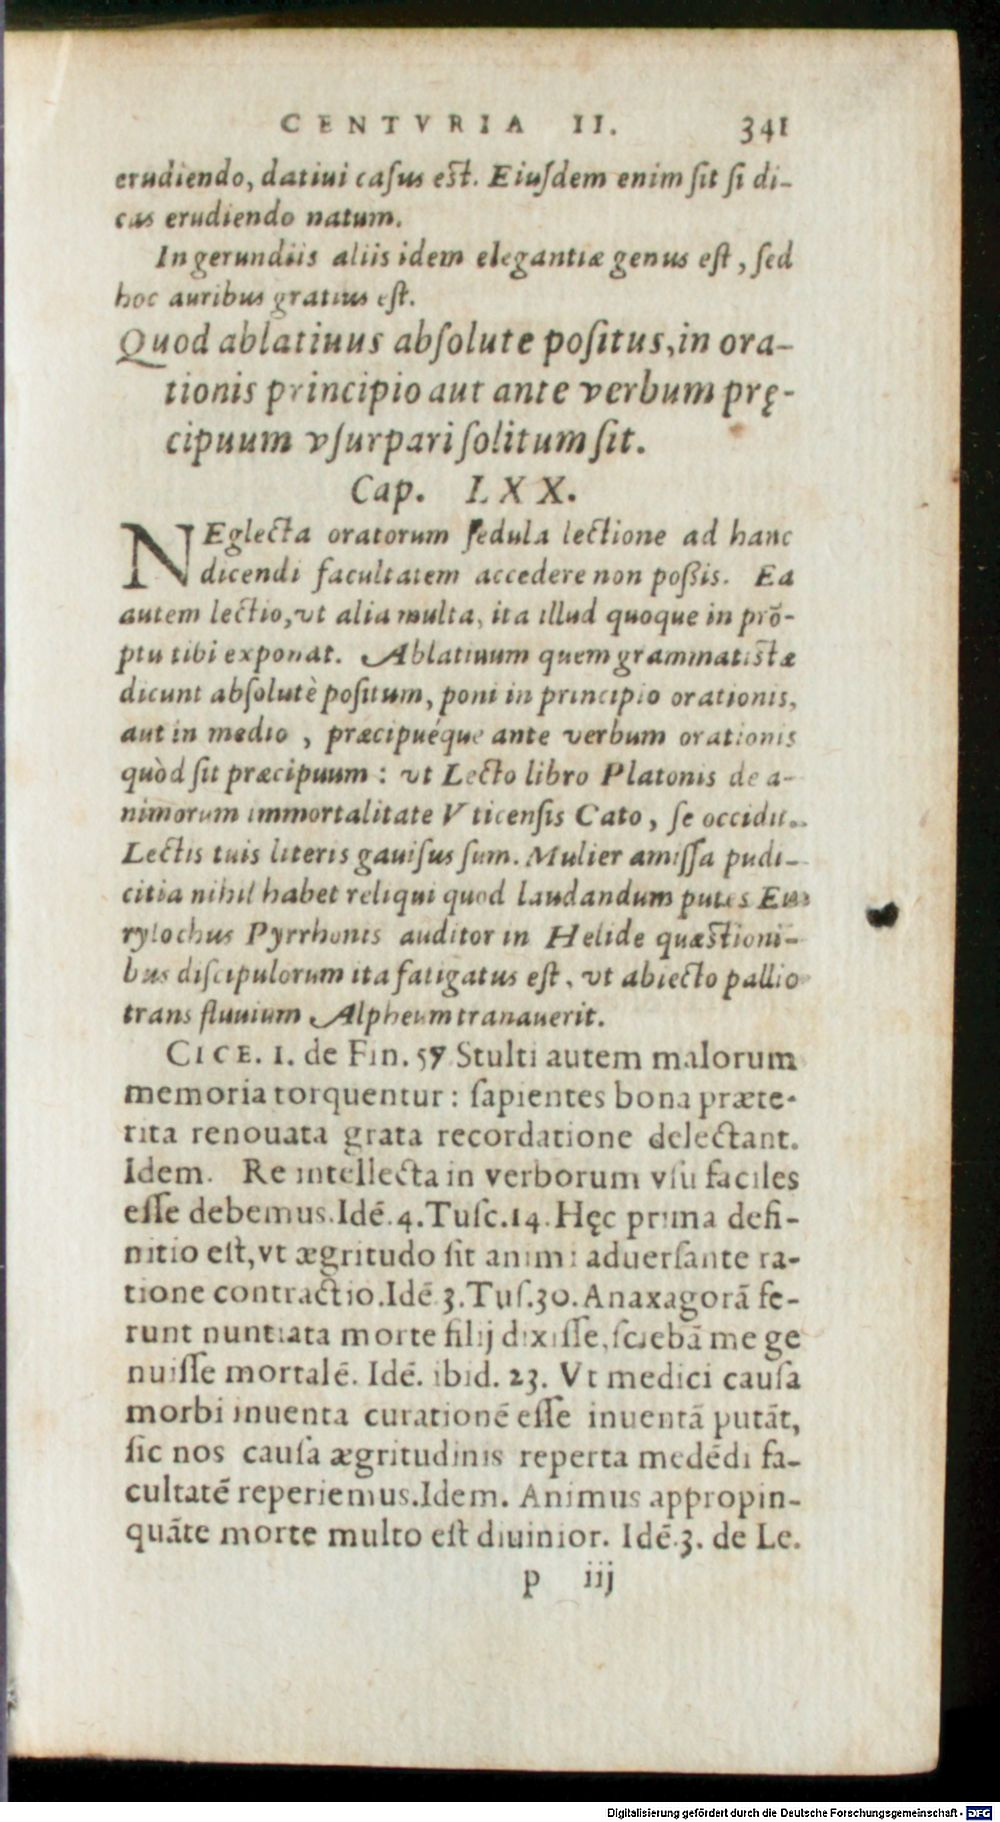 CENTVRIA II. 341
erudiendo, datiui casus est. Eiusdem enim sit si di-
cas erudiendo natum.
In gerundiis aliis idem elegantiæ genus est, sed
hoc auribus gratius est.
Quod ablatiuus absolute positus, in ora-
tionis principio aut ante verbum prę-
cipuum vsurpari solitum sit.
Cap. LXX.
NEglecta oratorum sedula lectione ad hanc
dicendi facultatem accedere non possis. Ea
autem lectio, vt alia multa, ita illud quoque in prō-
ptu tibi exponat. Ablatiuum quem grammatistæ
dicunt absolutè positum, poni in principio orationis,
aut in medio, præcipuéque ante verbum orationis
quòd sit præcipuum: vt Lecto libro Platonis de a-
nimorum immortalitate Vticensis Cato, se occidit.
Lectis tuis literis gauisus sum. Mulier amissa pudi-
citia nihil habet reliqui quod laudandum putes Eu-
rylochus Pyrrhonis auditor in Helide quæstioni-
bus discipulorum ita fatigatus est, vt abiecto pallio
trans fluuium Alpheum tranauerit.
CICE. 1. de Fin. 57 Stulti autem malorum
memoria torquentur: sapientes bona præte-
rita renouata grata recordatione delectant.
Idem. Re intellecta in verborum vsu faciles
esse debemus. Idē. 4. Tusc. 14. Hęc prima defi-
nitio est, vt ægritudo sit animi aduersante ra-
tione contractio. Idē 3. Tus. 30. Anaxagorā fe-
runt nuntiata morte filij dixisse, sciebā me ge
nuisse mortalē. Idē. ibid. 23. Vt medici causa
morbi inuenta curationē esse inuentā putāt,
sic nos causa ægritudinis reperta medēdi fa-
cultatē reperiemus. Idem. Animus appropin-
quāte morte multo est diuinior. Idē. 3. de Le.
p iij
Digitalisierung gefördert durch die Deutsche Forschungsgemeinschaft - DFG